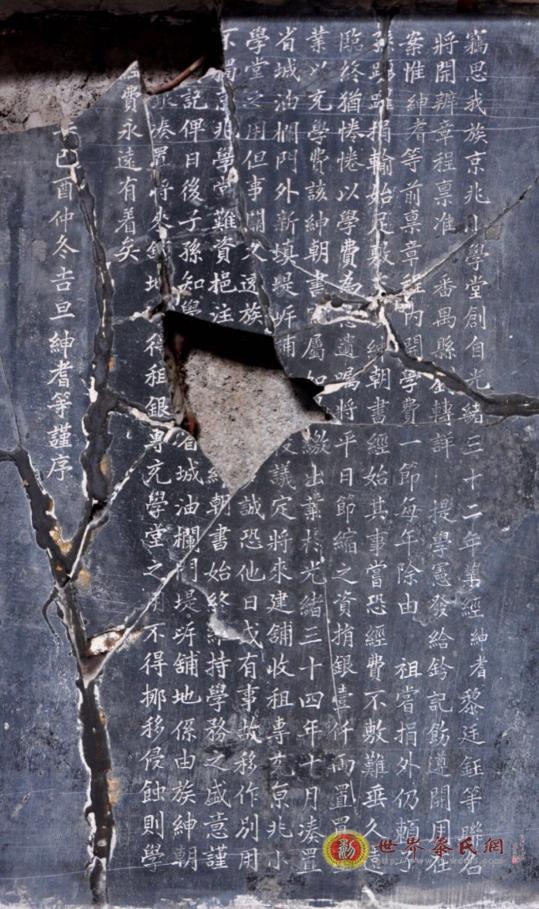 竊思我族京兆小學堂創自光緒三十二年業經紳耆黎廷鈺等聯名
將開辦章程禀准 番禺縣 轉詳 提學憲發給鈐記飭遵開用在
案惟紳耆等前禀章程內開學費一節每年除由 祖嘗捐外仍賴子
孫踴躍捐輸始足 朝書經始其事當恐經費不敷難垂久遠
臨終猶惓惓以學費為 遺囑將平日節縮之資捐銀壹仟兩置
業以充學費該紳朝書 屬如 繳出業於光緒三十四年十月湊置
省城油欄門外新填堤岸 議定將來建舖收租專充京兆小
學堂之用但事關久遠族 誠恐他日或有事故移作別用
不獨京兆學堂難資挹注 紳朝書始終維持學務之盛意謹
記俾日後子孫知 省城油欄門堤岸舖地係由族紳朝
湊置將來 地 租銀專充學堂之用不得挪移侵蝕則學
經費永遠有着矣
己酉仲冬吉旦紳耆等謹序
世界黎氏網